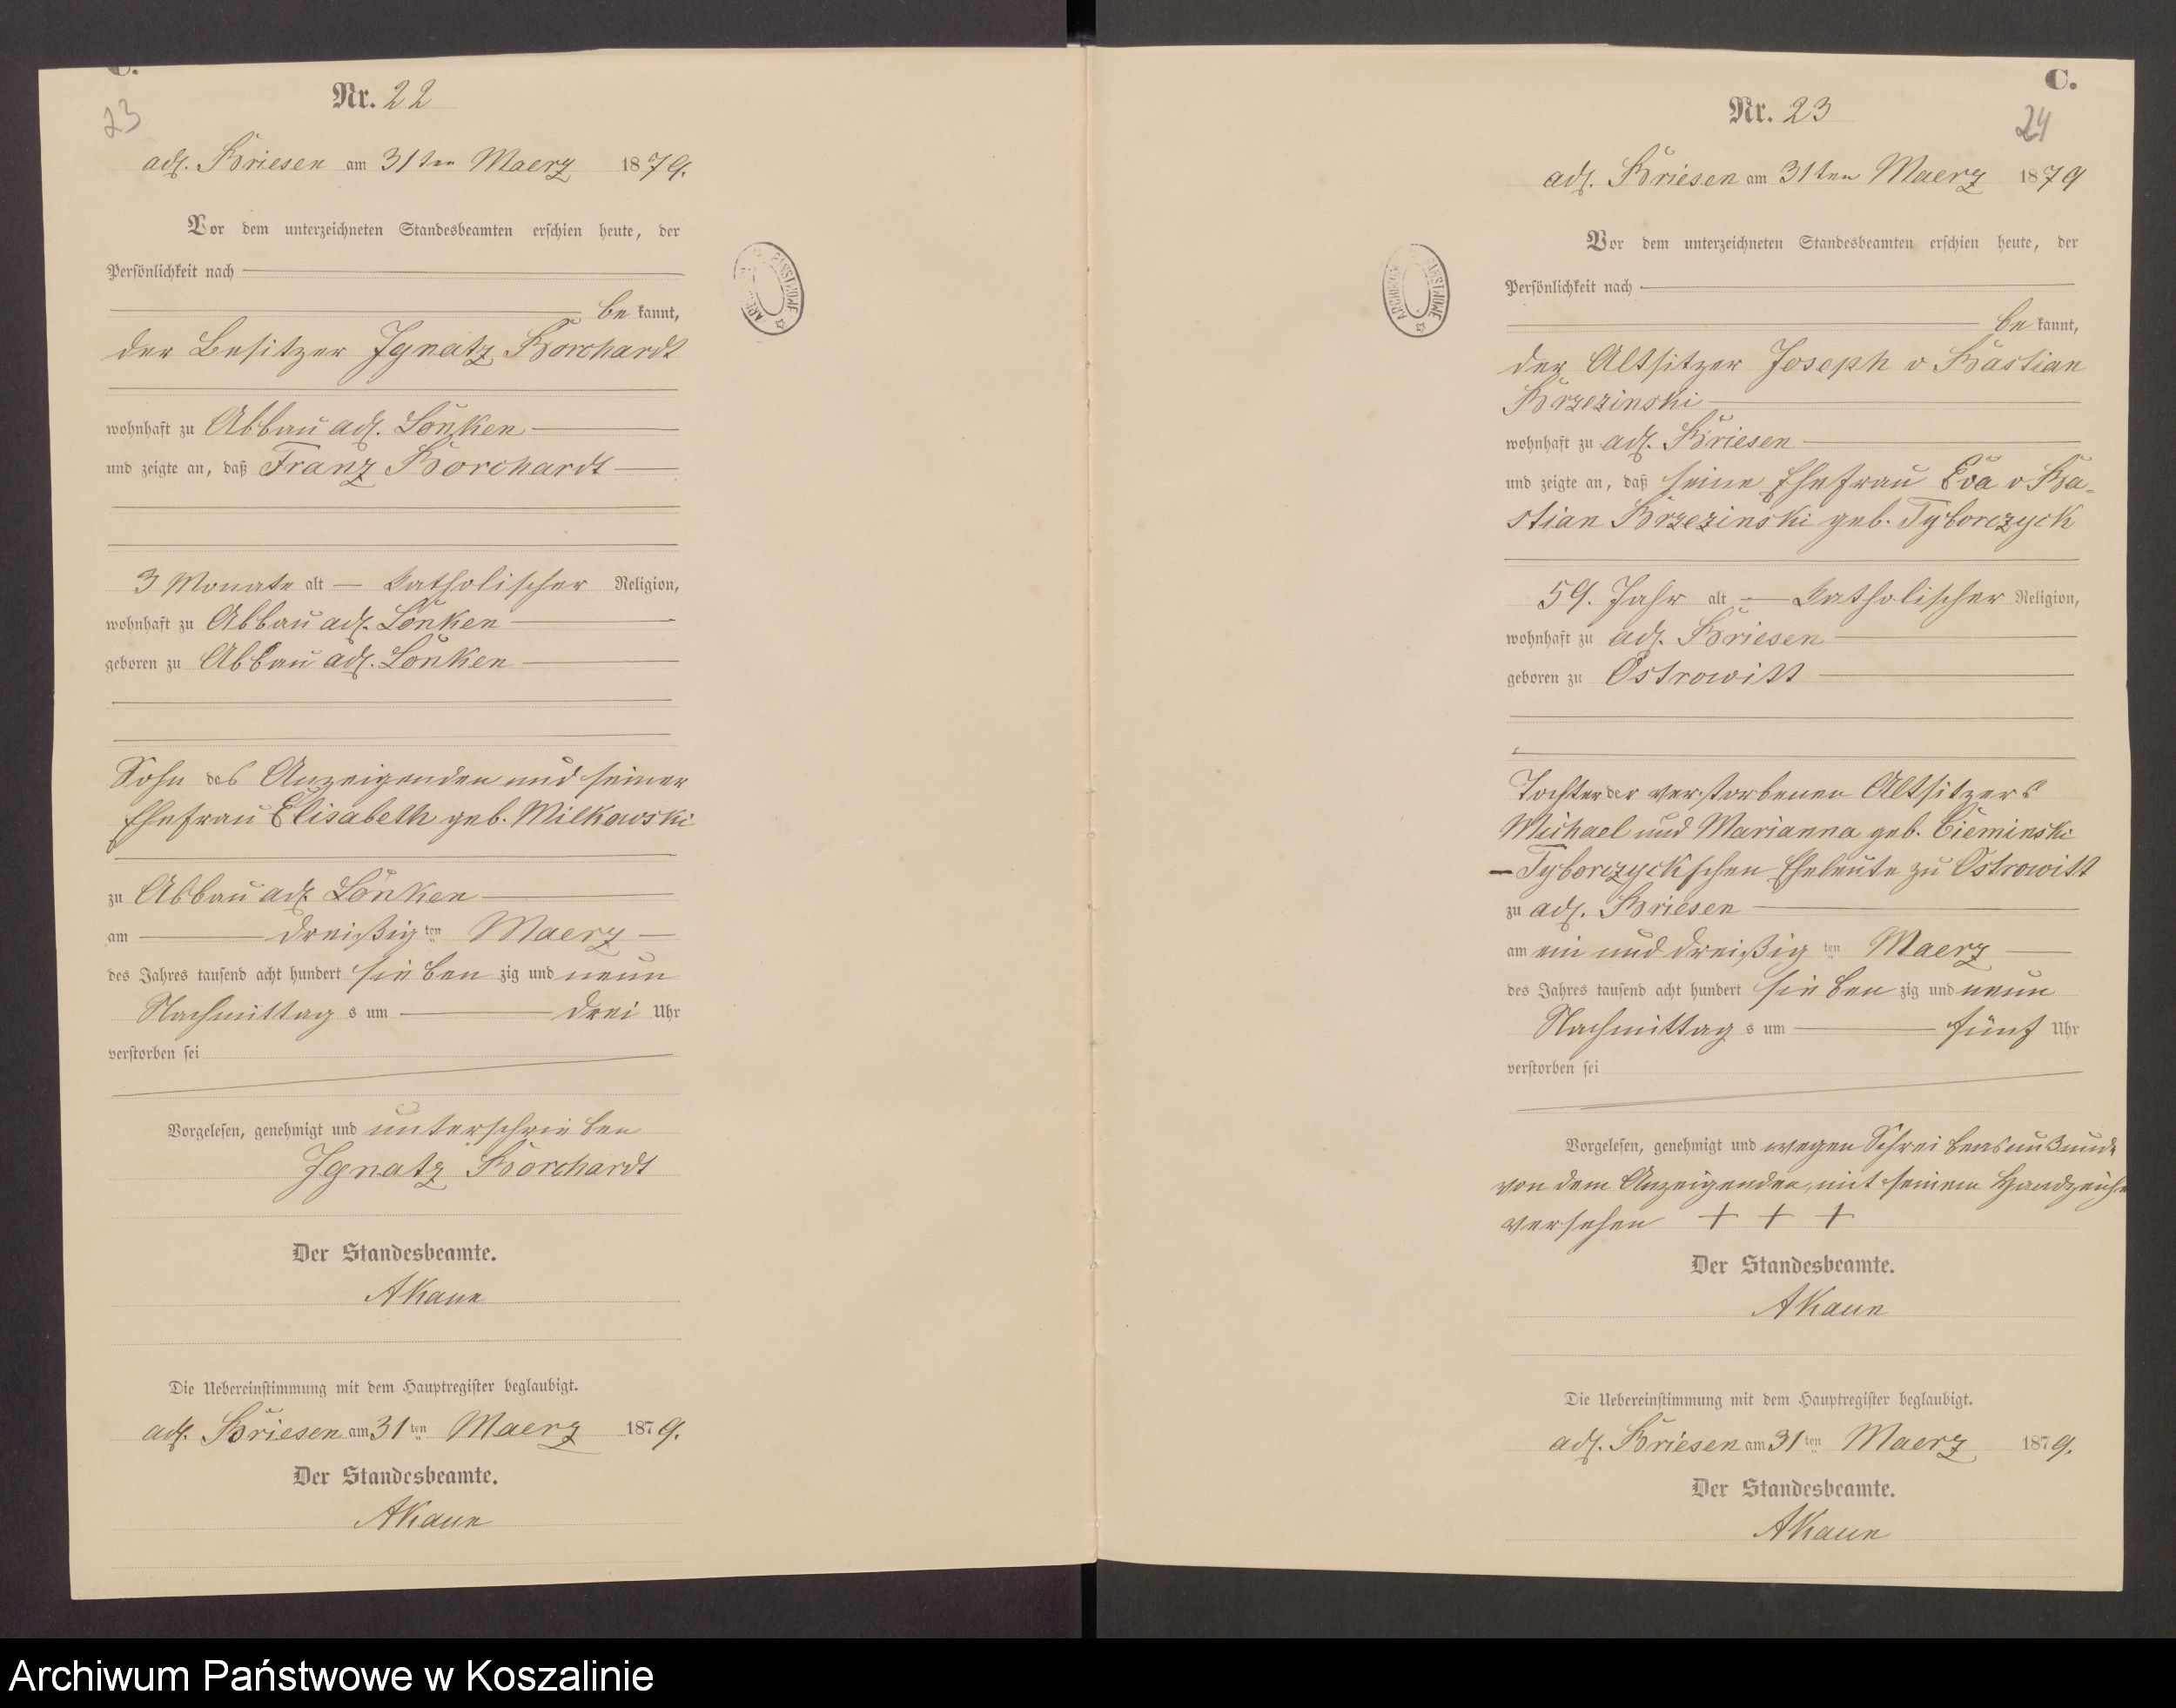 C.
Nr. 22
23
adl. Briesen am 31ten Maerz 1879.
Vor dem unterzeichneten Standesbeamten erschien heute, der
Persönlichkeit nach
be kannt,
der Besitzer Ignatz Borchardt
wohnhaft zu Abbau adl. Lonken
und zeigte an, daß Franz Borchardt
3 Monate alt — katholischer Religion,
wohnhaft zu Abbau adl. Lonken
geboren zu Abbau adl. Lonken
Sohn des Anzeigenden und seiner
Ehefrau Elisabeth geb. Milkowski
zu Abbau adl. Lonken
am — dreißig ten Maerz —
des Jahres tausend acht hundert sieben zig und neun
Nachmittag s um — drei Uhr
verstorben sei
Vorgelesen, genehmigt und unterschrieben
Ignatz Borchardt
Der Standesbeamte.
AKaun
Die Uebereinstimmung mit dem Hauptregister beglaubigt.
adl. Briesen am 31 ten Maerz 1879.
Der Standesbeamte.
AKaun
ARCHIWUM PAŃSTWOWE
C.
Nr. 23
24
adl. Briesen am 31ten Maerz 1879
Vor dem unterzeichneten Standesbeamten erschien heute, der
Persönlichkeit nach
be kannt,
der Altsitzer Joseph v Bastian
Brzezinski
wohnhaft zu adl. Briesen
und zeigte an, daß seine Ehefrau Eva v Ba-
stian Brzezinski geb. Tyborczyck
59. Jahr alt — katholischer Religion,
wohnhaft zu adl. Briesen
geboren zu Ostrowitt
Tochter der verstorbenen Altsitzers
Michael und Marianna geb. Cieminski
— Tyborczyckschen Eheleute zu Ostrowitt
zu adl. Briesen
am ein und dreißig ten Maerz —
des Jahres tausend acht hundert sieben zig und neun
Nachmittag s um — fünf Uhr
verstorben sei
Vorgelesen, genehmigt und wegen
von dem Anzeigenden, mit seinem
versehen + + +
Der Standesbeamte.
AKaun
Die Uebereinstimmung mit dem Hauptregister beglaubigt.
adl. Briesen am 31 ten Maerz 1879.
Der Standesbeamte.
AKaun
ARCHIWUM PAŃSTWOWE
Archiwum Państwowe w Koszalinie